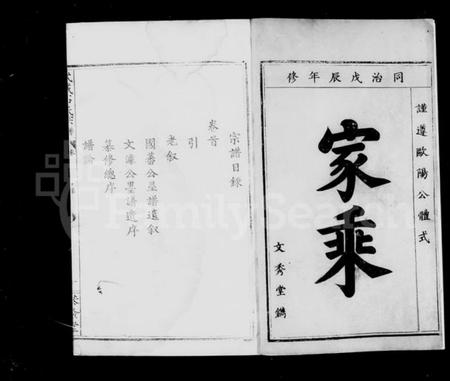 同治戊辰年修
謹遵歐陽公體式
家乘
文秀堂鐫
宗譜目錄
卷首
引
老叙
國蕃公墨譜遺叙
文謙公墨譜遺序
纂修總序
譜論
FamilySearch